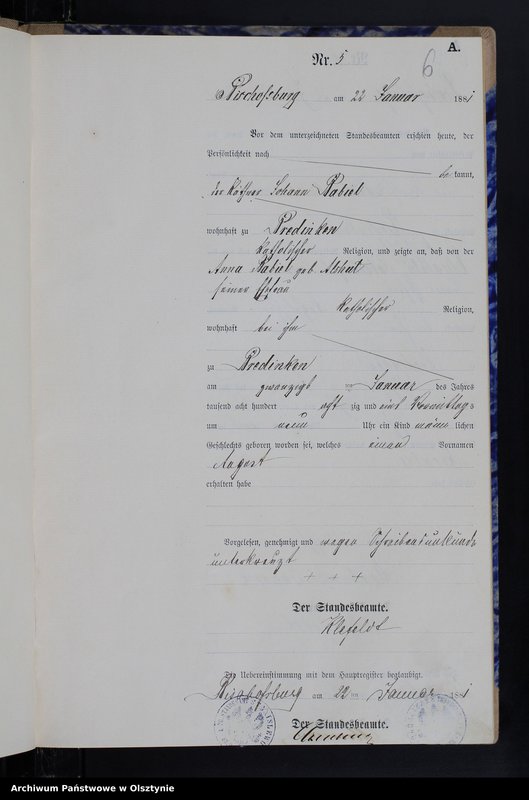 A.
6
Nr. 5
Bischofsburg am 22 Januar 1881
Vor dem unterzeichneten Standesbeamten erschien heute, der
Persönlichkeit nach
be kannt,
der Käthner Johann
wohnhaft zu Bredinken
katholischer Religion, und zeigte an, daß von der
Anna geb.
seiner Ehefrau
katholischer Religion,
wohnhaft bei ihm
zu Bredinken
am zwanzigst en Januar des Jahres
tausend acht hundert acht zig und eins Vormittags
um neun Uhr ein Kind männ lichen
Geschlechts geboren worden sei, welches einen Vornamen
August
erhalten habe
Vorgelesen, genehmigt und wegen Schreibensunkunde
unterkreuzt
+ + +
Der Standesbeamte.
Klefeldt
Die Uebereinstimmung mit dem Hauptregister beglaubigt.
Bischofsburg am 22 ten Januar 1881
Der Standesbeamte.
Archiwum Państwowe w Olsztynie